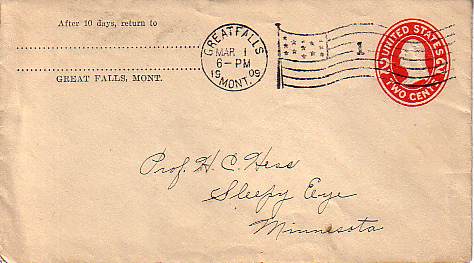 After 10 days, return to
GREAT FALLS, MONT.
GREAT FALLS
MAR 1
6-PM
1909
MONT.
1
UNITED STATES
2 2
TWO CENTS
Prof. H. C. Hess
Sleepy Eye
Minnesota